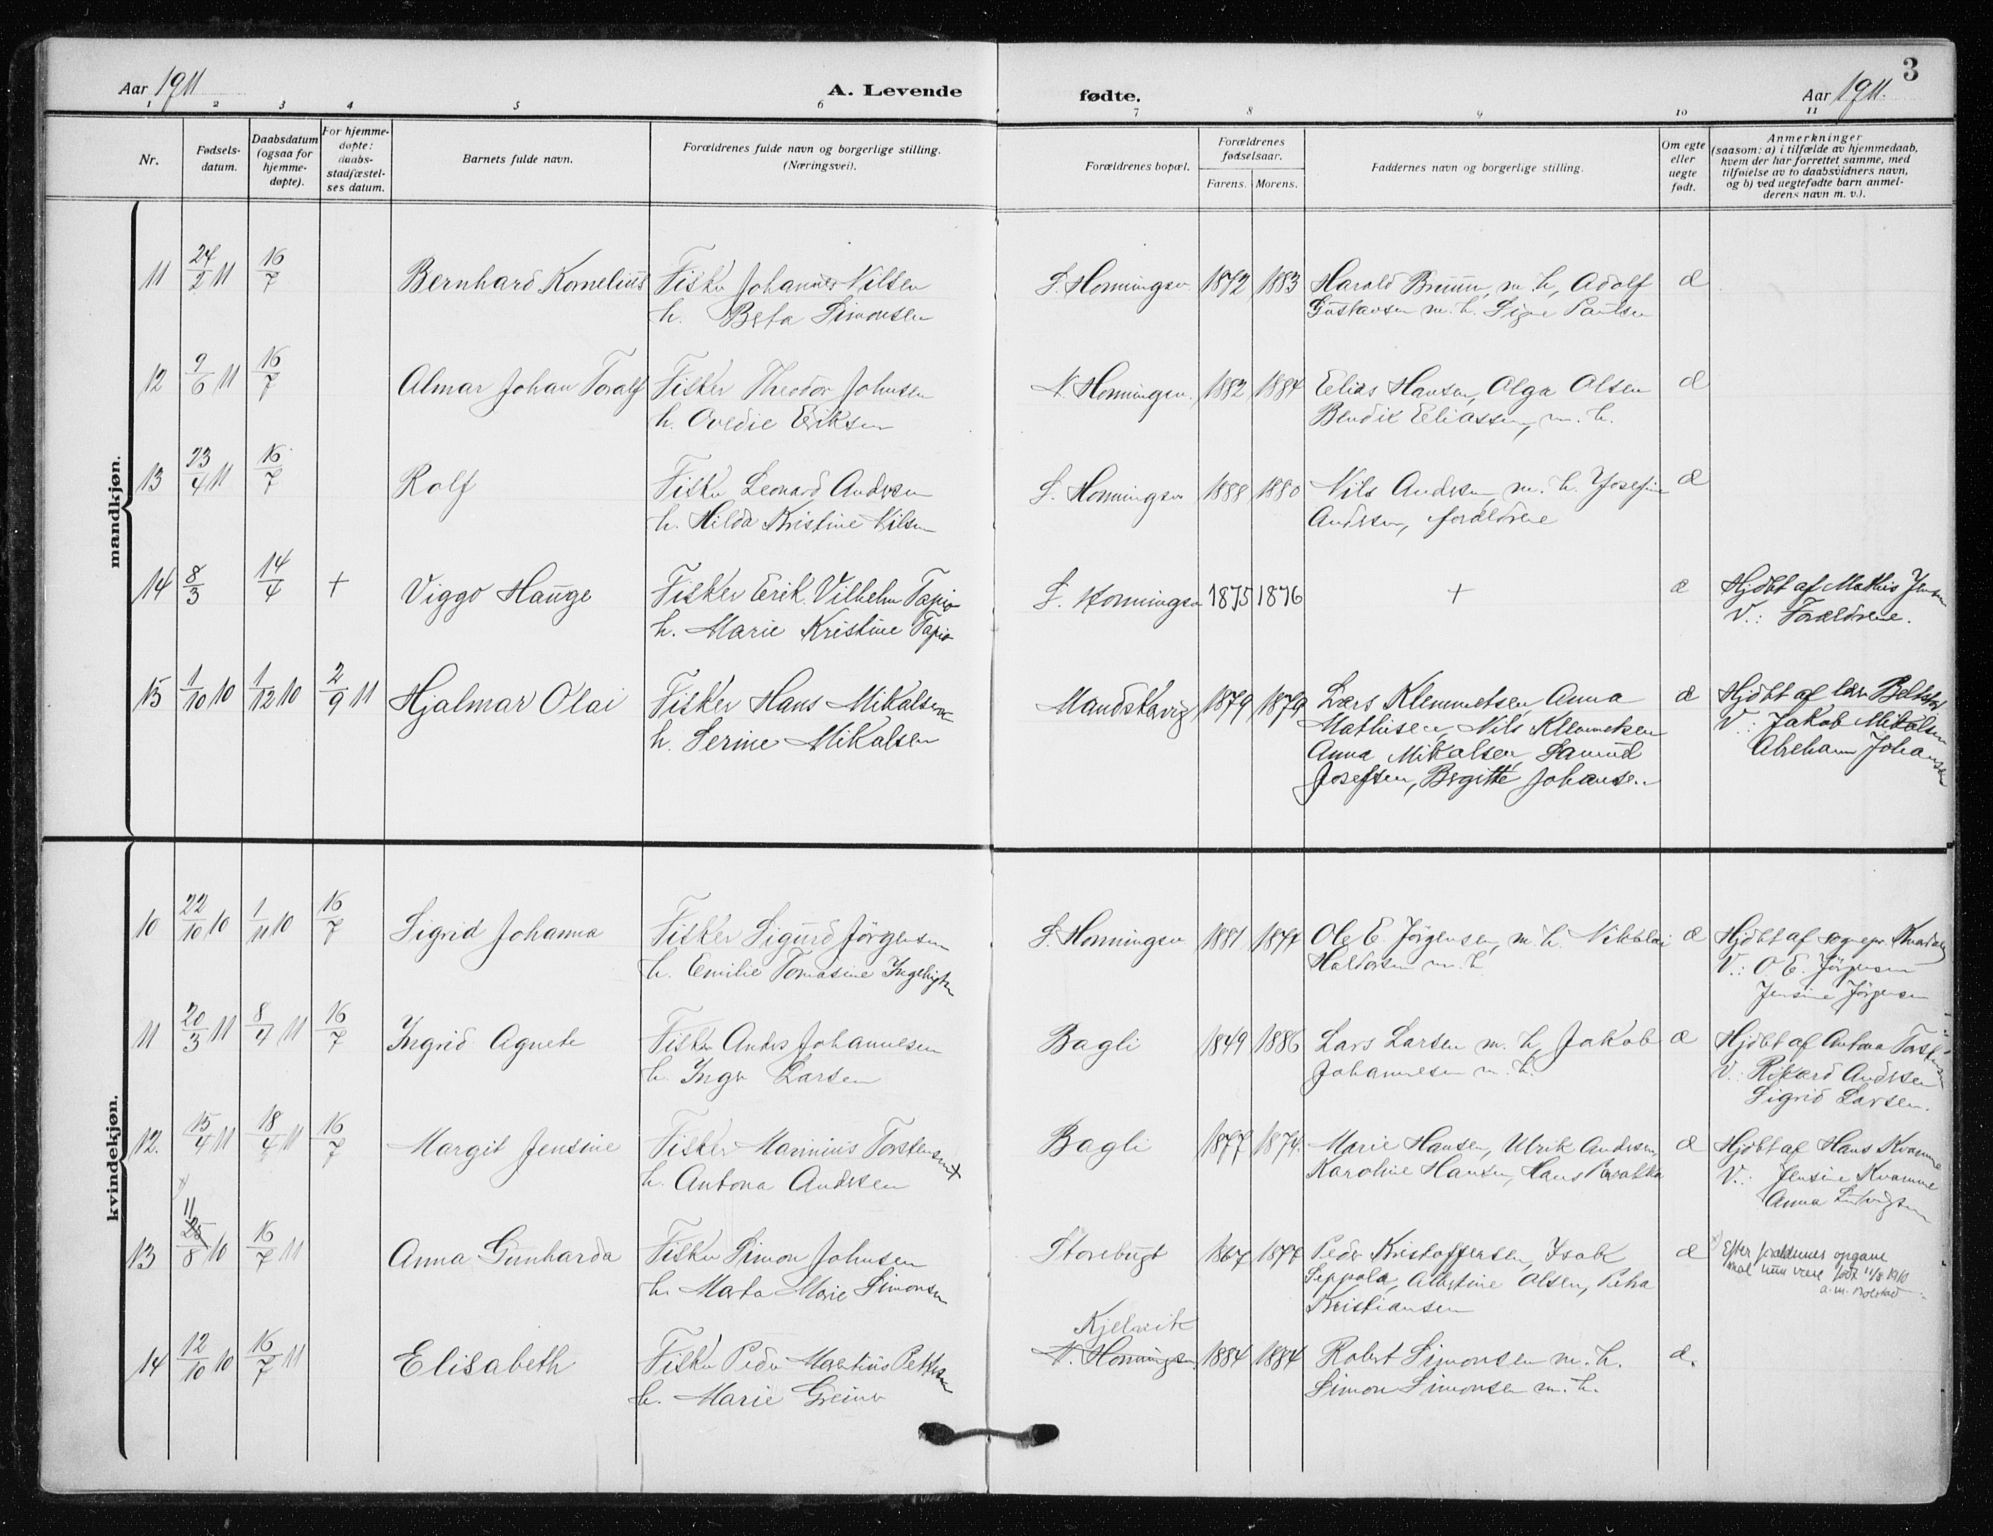 Aar 1911
A. Levende
fødte.
Aar 1911.
3
1 2 3 4 5 6 7 8 9 10 11
Nr.
Fødsels-
datum.
Daabsdatum
(ogsaa for
hjemme-
døpte).
For hjemme-
døpte:
daabs-
stadfæstel-
ses datum.
Barnets fulde navn.
Forældrenes fulde navn og borgerlige stilling.
(Næringsvei).
Forældrenes bopæl.
Forældrenes
fødselsaar.
Farens. Morens.
Faddernes navn og borgerlige stilling.
Om egte
eller
uegte
født.
Anmerkninger
(saasom: a) i tilfælde av hjemmedaab,
hvem der har forrettet samme, med
tilføielse av to daabsvidners navn,
og b) ved uegtefødte barn anmel-
derens navn m. v.).
mandkjøn.
11 24/2 11 16/7 Bernhard Kornelius Fisker Johannes Nilsen S. Honningsv 1872 1883 Harald Bruun, m. h, Adolf æ
h. Berta Simonsen Gustavsen m. h. Signe Paulsen
12 9/6 11 16/7 Almar Johan Toralf Fisker Theodor Johnsen N. Honningsv. 1882 1884 Elias Hansen, Olga Olsen æ
h. Ovedie Eriksen Bendix Eliassen, m. h.
13 23/4 11 16/7 Rolf Fisker Leonard Andersen S. Honningsv 1888 1880 Nils Andersen m. h. Josefine æ
h. Hilda Kristine Nilsen Andersen, forældrene
14 8/3 14/4 + Viggo Hauge Fisker Erik Vilhelm Tapio S. Honningsv 1875 1876 + æ Hjdbt af Mathis Jensen
h. Marie Kristine Tapio V.: Forældrene.
15 1/10 10 1/12 10 2/9 11 Hjalmar Olai Fisker Hans Mikalsen Mandskarvig 1879 1879 Lars Klemmetsen Anna æ Hjdbt af
h. Serine Mikalsen Mathisen, Nils Klemmetsen V: Jakob Mikalsen
Anna Mikalsen, Samuel Abraham Johansen
Josefsen, Birgitte Johansen
kvindekjøn.
10 22/10 10 1/11 10 16/7 Sigrid Johanna Fisker Sigurd Jörgensen S. Honningsv 1881 1877 Ole E. Jörgensen, m. h. Nikolai æ Hjdbt af sognepr.
h. Emilie Tomasine Haldorsen m. h. V.: O. E. Jörgensen
Jensine Jörgensen
11 20/3 11 8/4 11 16/7 Ingrid Agnete Fisker Anders Johannesen Bagli 1849 1886 Lars Larsen m. h, Jakob æ Hjdbt af Antona Torstensen
h. Inga Larsen Johannesen m. h. V: Rikard Andersen
Sigrid Larsen.
12. 15/4 11 18/4 11 16/7 Margit Jensine Fisker Marinius Torstensen + Bagli 1877 1874. Marie Hansen, Ulrik Andersen, æ Hjdbt af Hans Kvamme
h. Antona Andersen Karoline Hansen, Hans V.: Jensine Kvamme
Anna Ludvigsen
11
13 25/8 10 16/7 11 Anna Gunharda Fisker Simon Johnsen Storebugt 1867 1877 Peder Kristoffersen, Isak æ Efter forældrenes opgave
h. Marta Marie Simonsen Seppola, Albertine Olsen, Petra skal hun være født 11/8 1910
Kristiansen a. m. Bolstad
Kjelvik
14 12/10 10 16/7 11 Elisabeth Fisker Peder Martinius Pettersen N. Honningsv. 1884 1884 Robert Simonsen m. h. æ.
h. Marie Greiner Simon Simonsen m. h.